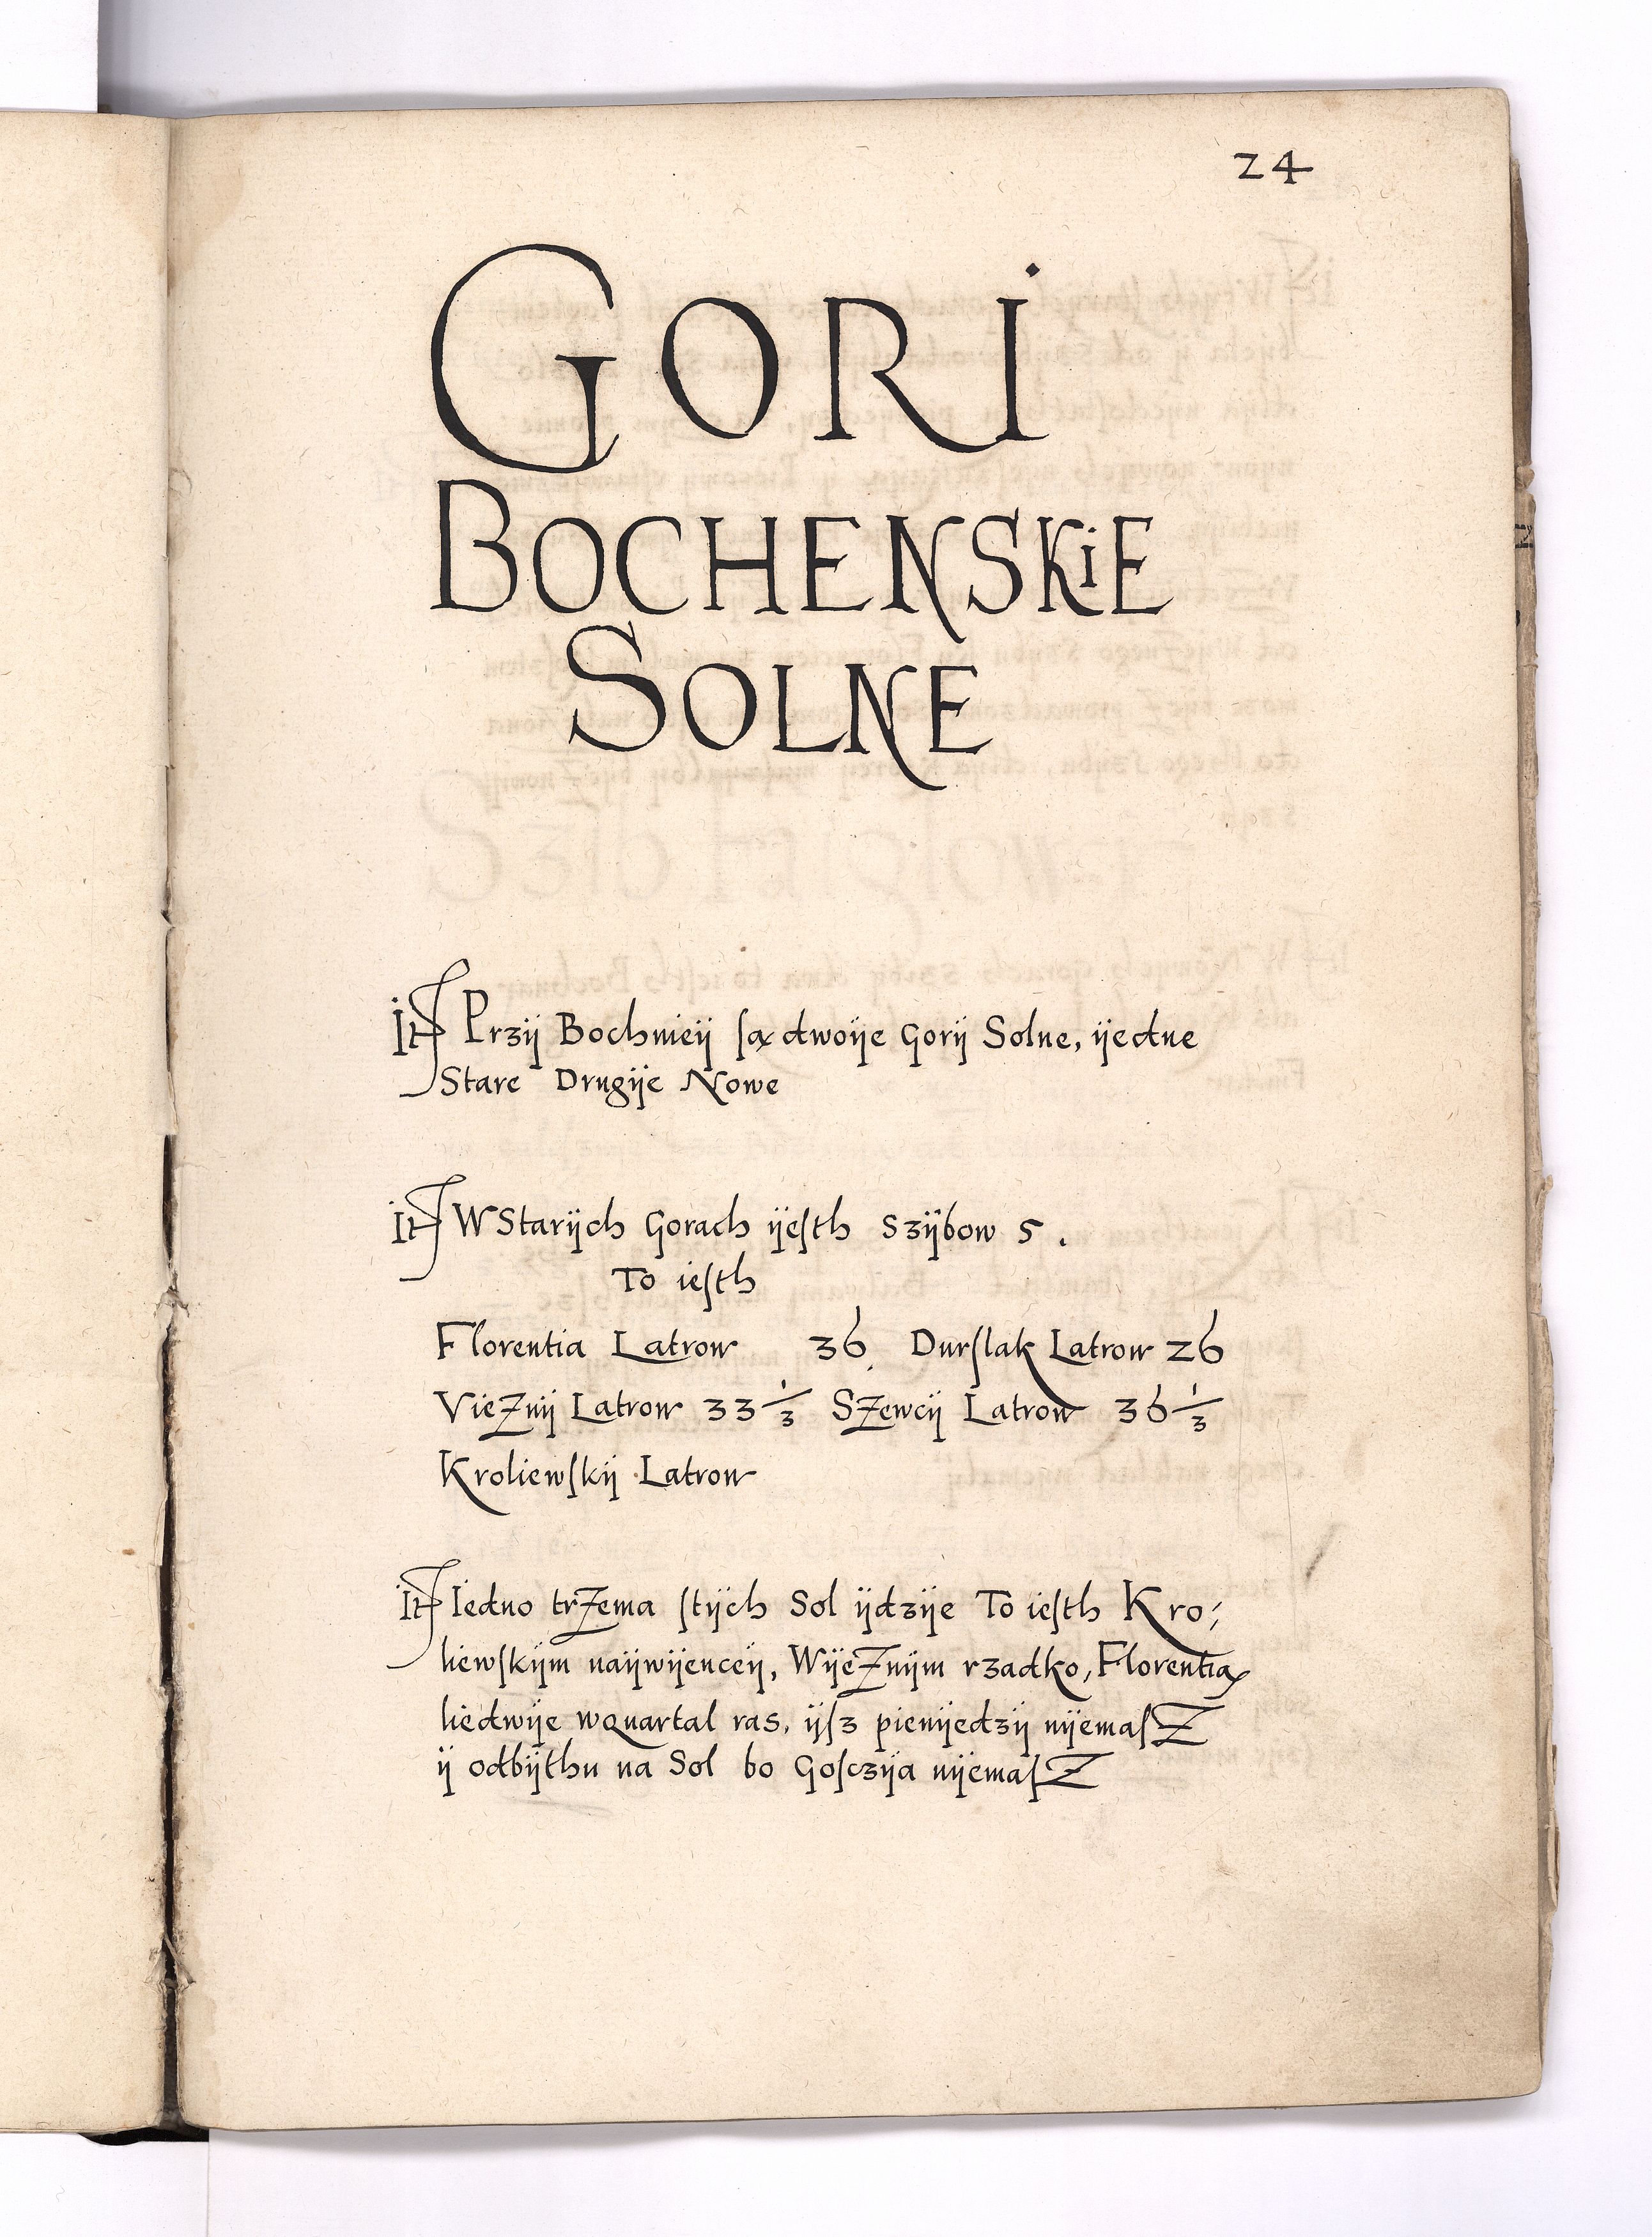 24
GORI
BOCHENSKiE
SOLNE
It Przÿ Bochnieÿ ſą dwoÿe Gorÿ Solne, ÿedne
Stare Drugÿe Nowe
It WStarÿch Gorach ÿeſth Szÿbow 5.
To ieſth
Florentia Latrow 36. Durſlak Latrow 26
VieZnÿ Latrow 33 1/3 SZewcÿ Latrow 36 1/3
Kroliewſkÿ Latrow
It Iedno trZema ſtÿch Sol ÿdzÿe To ieſth Kro⸗
liewſkÿm naÿwÿenceÿ, WÿeZnÿm rzadko, Florentią
liedwÿe wQuartal ras, ÿſz pienÿedzÿ nÿemaſZ
ÿ odbÿthu na Sol bo Goſczÿa nÿemaſZ